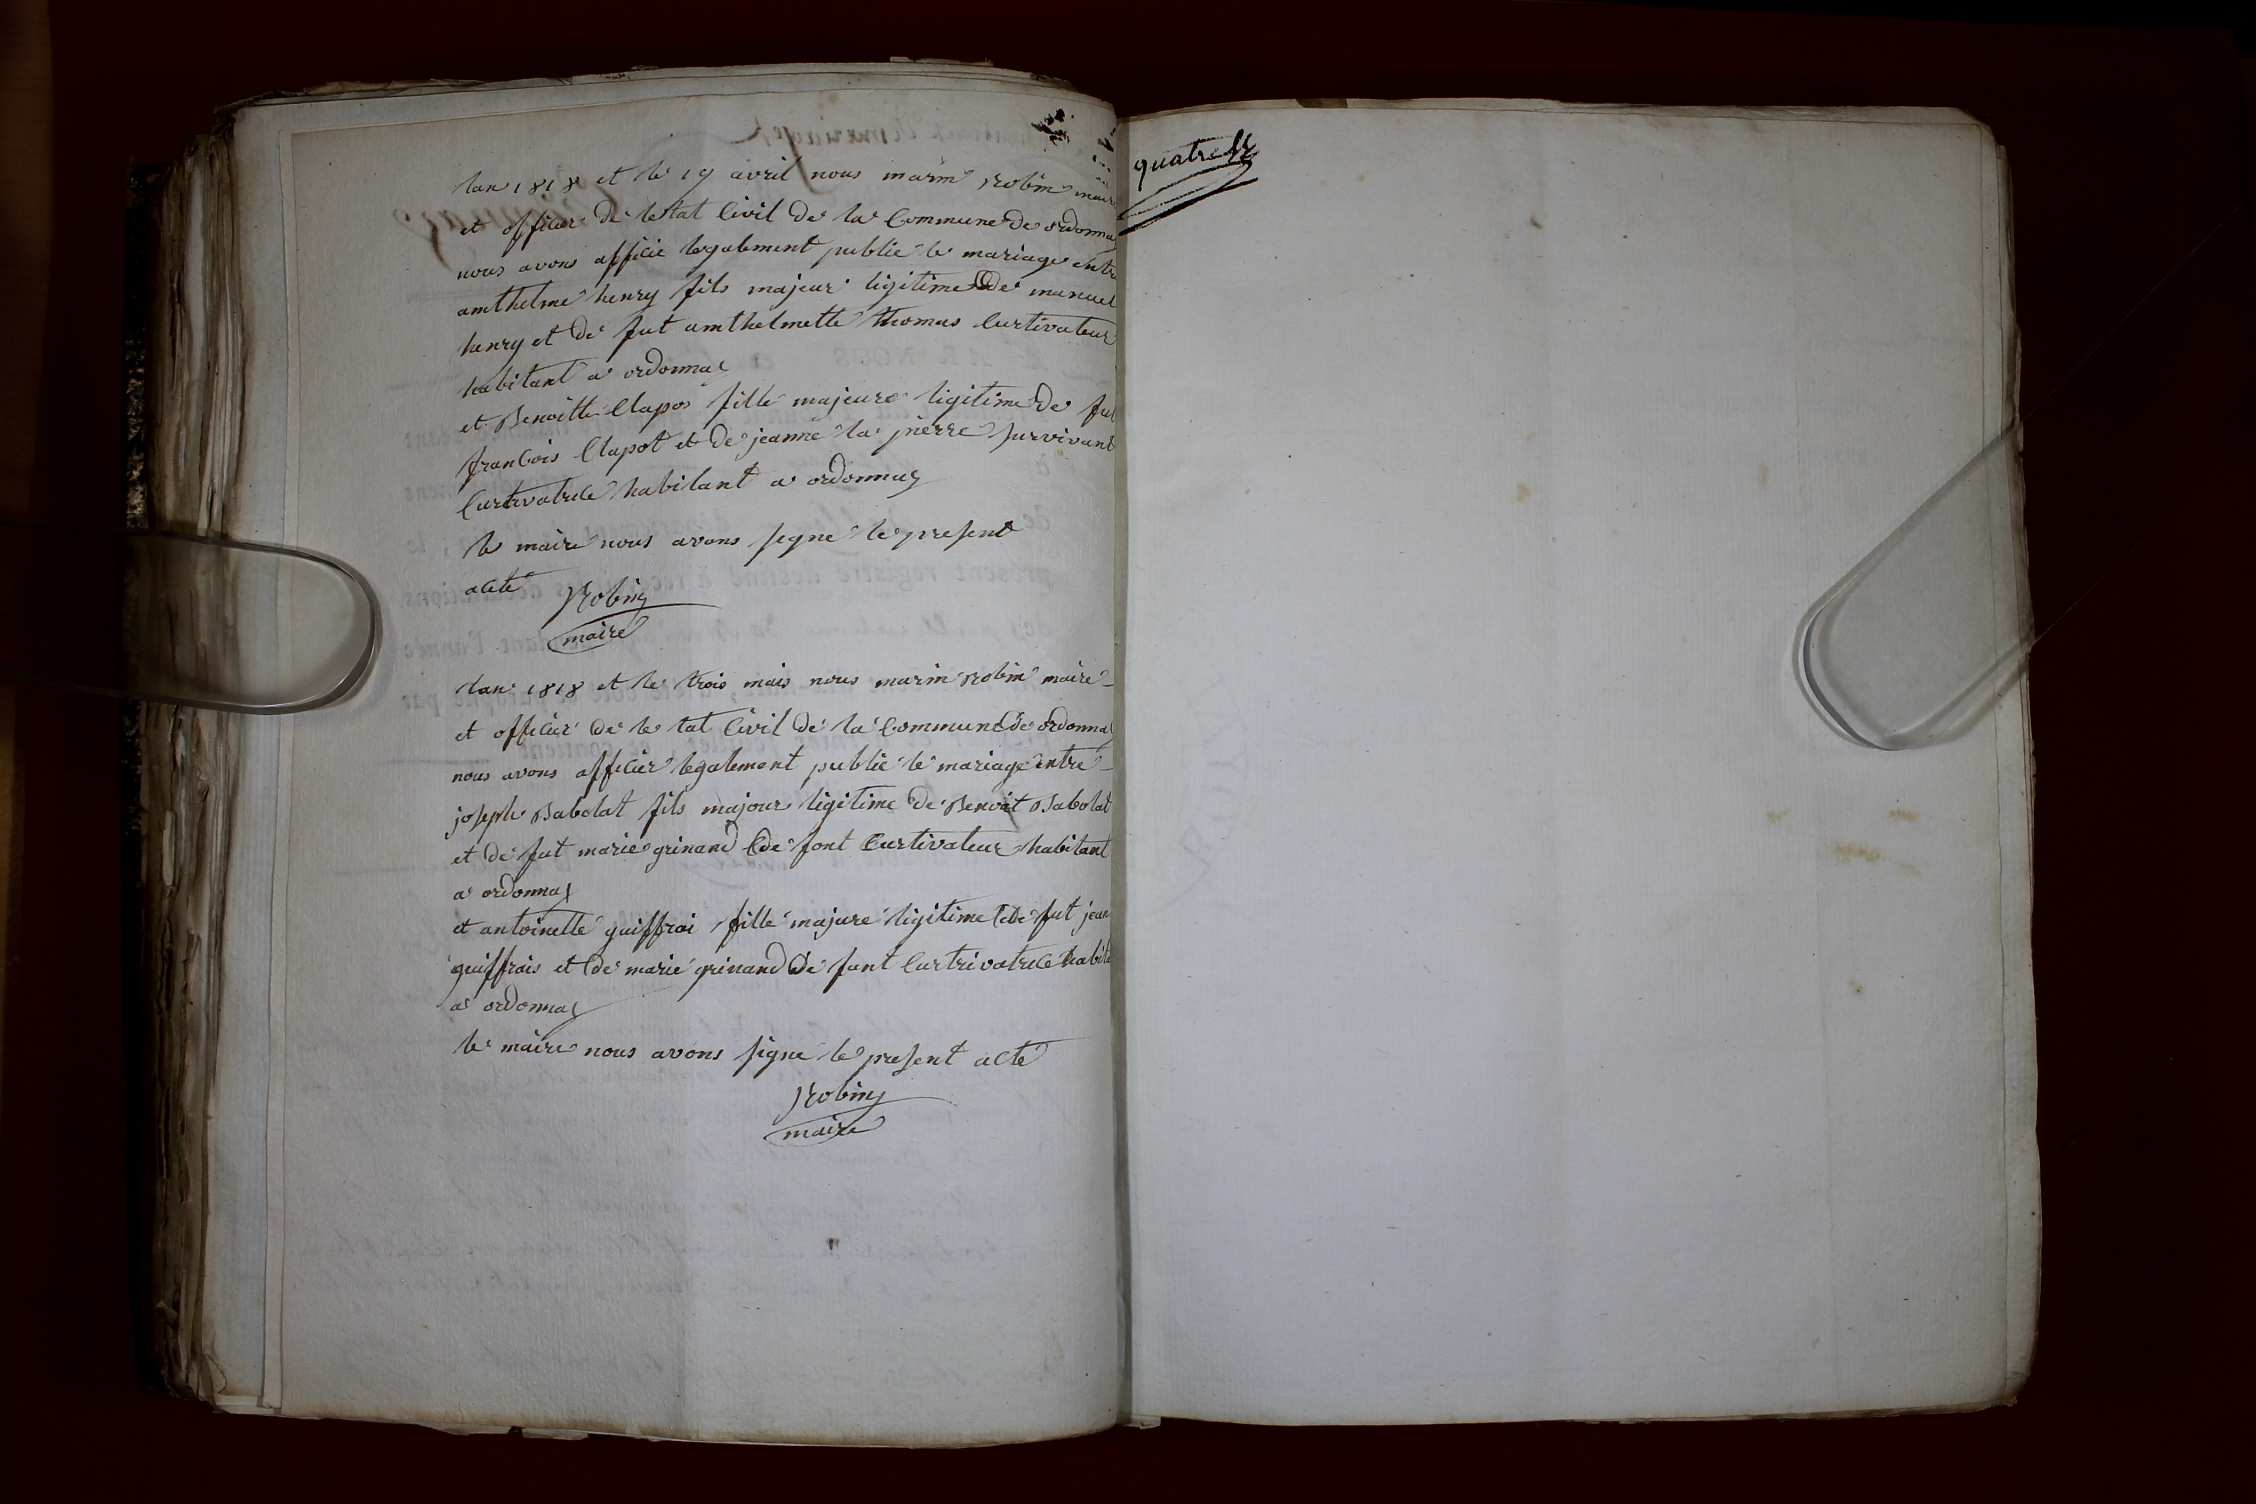 lan 1818 et le 19 avril nous marin Robin maire
et officier de letat Civil de la Commune de ordonna
nous avons afficié legalement publié le mariage entre
amthelme henry fils majeur ligitime de manuel
henry et de fut amthelmette thomas Curtivateur
habitant a ordonnas
et Benoitte Clapos fille majeure ligitime de fut
franCois Clapot et de jeanne la pierre survivant
Curtivatrice habitant a ordonnas
le maire nous avons segné le present
acte
Robin
maire
lan 1818 et le trois mais nous marin Robin maire
et officier de le tat Civil de la Commune de ordonnas
nous avons afficier legalement publié le mariage entre
joseph Babolat fils majour ligitime de Benoit Babolat
et de fut marie grinand de font Curtivateur habitant
a ordonnas
et antoinette guiffrai fille majure ligitime de fut jean
guiffrais et de marie grinand de funt Curtrivatrice habita
a ordonnas
le maire nous avons signé le present acte
Robin
maire
quatre